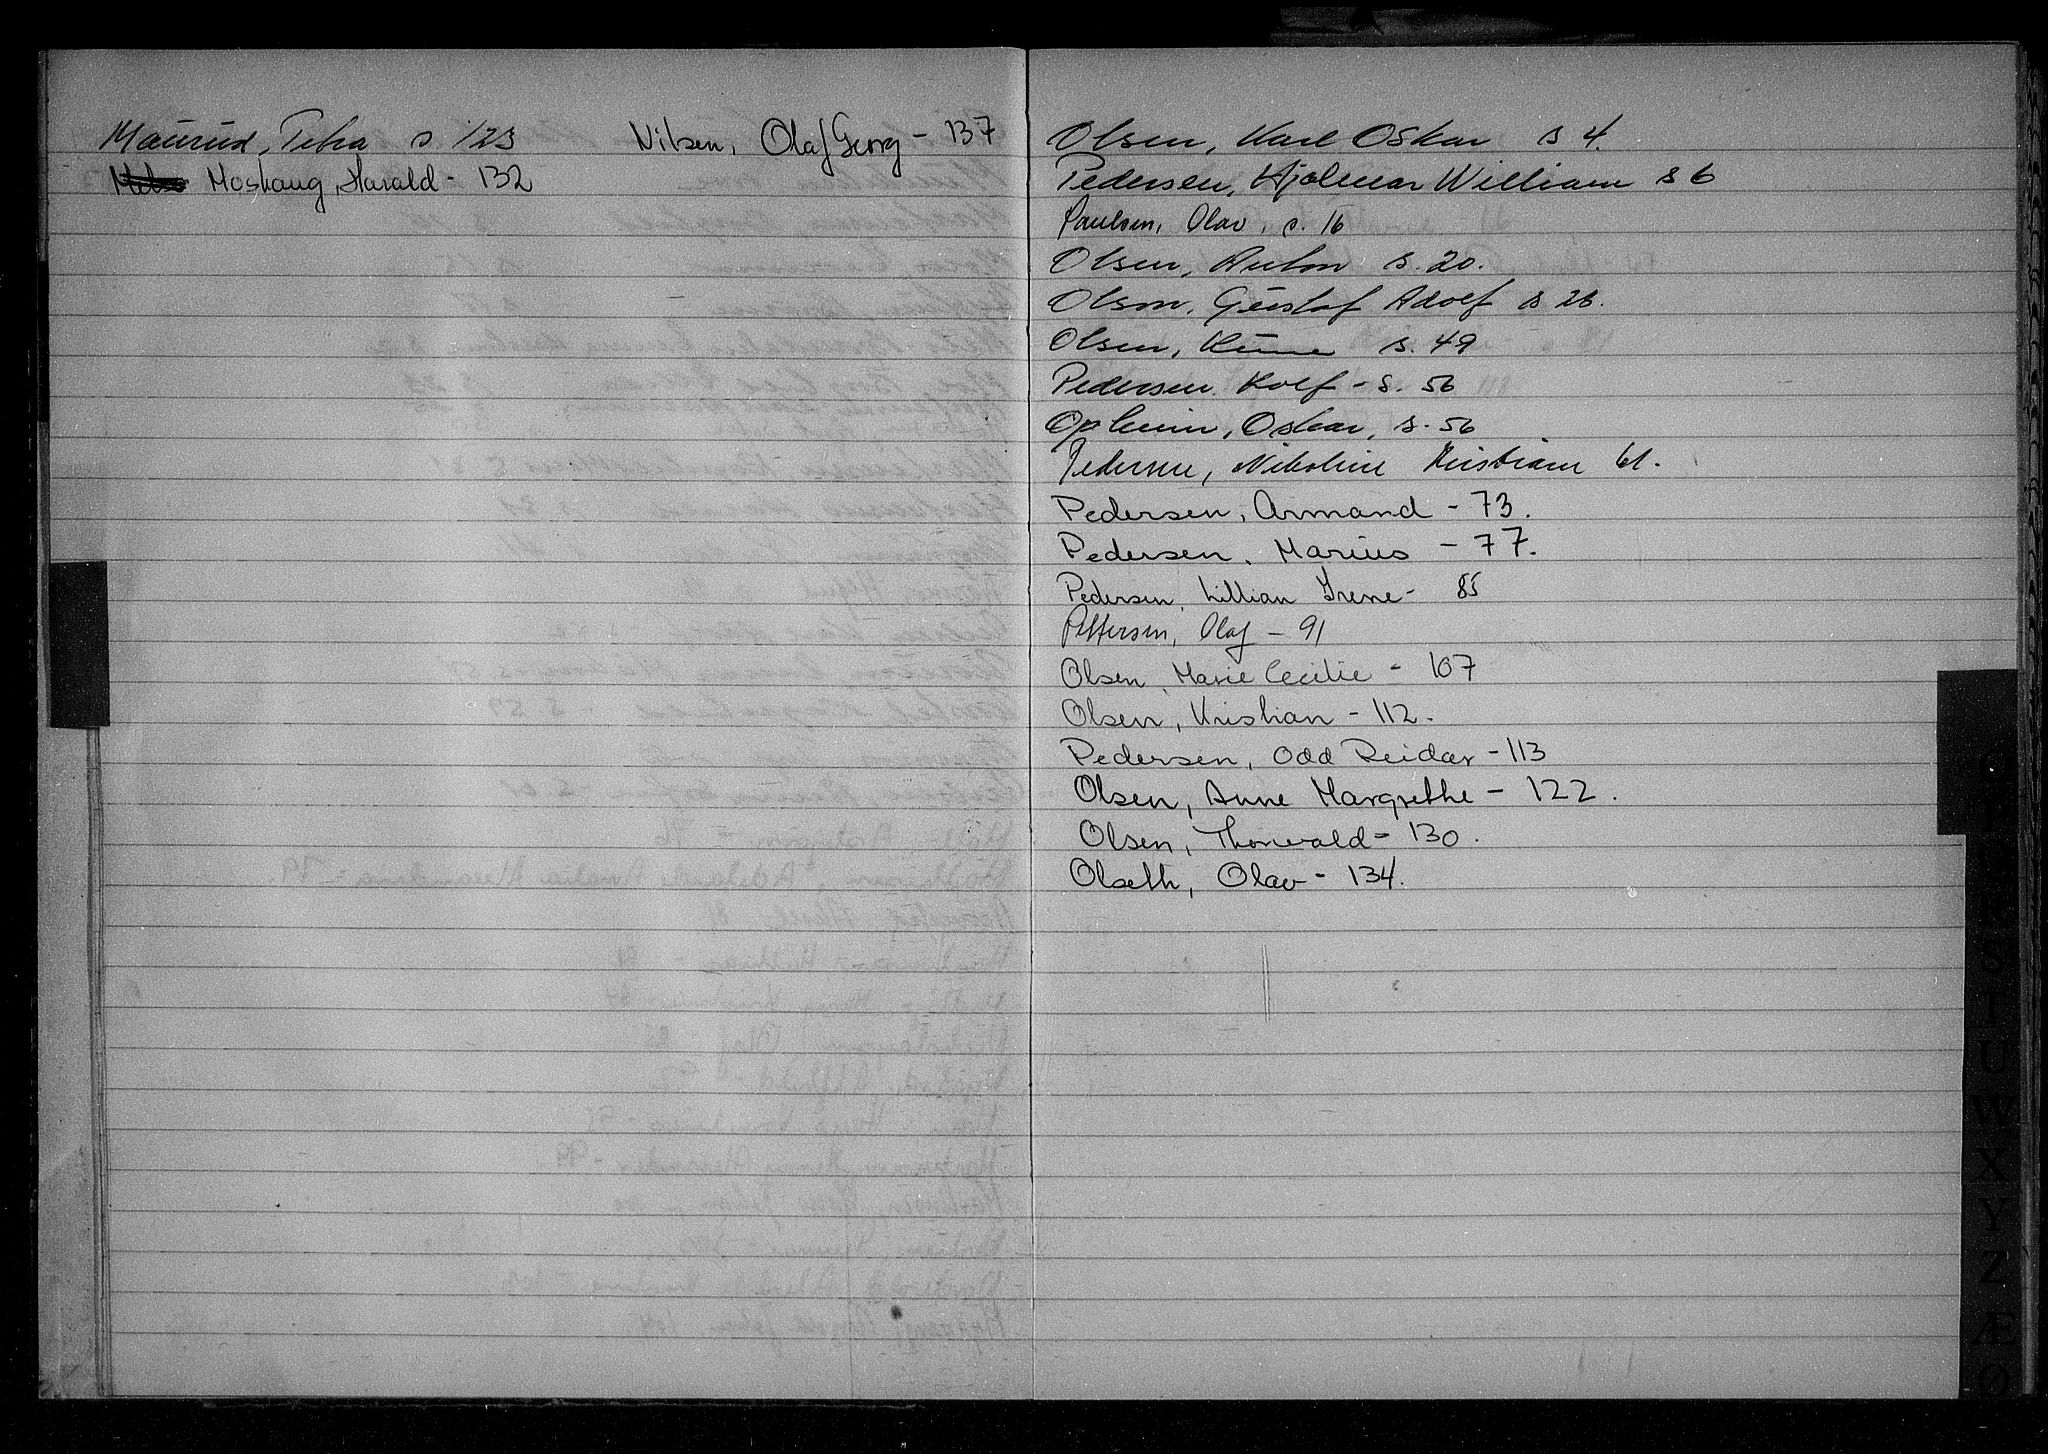 Maurud, Petra s 123
Moshaug, Harald - 132
Nilsen, Olaf Georg - 137
Olsen, Karl Oskar s 4.
Pedersen, Hjalmar William s 6
Paulsen, Olav, s. 16
Olsen, Anton s. 20.
Olsen, Gustaf Adolf s 26.
Olsen, s. 49
Pedersen. Rolf - s. 56
Opheim, Oskar, s. 56
Pedersen, Nikoline Kristiane 61.
Pedersen, Armand - 73.
Pedersen, Marius - 77.
Pedersen, Lillian Irene - 85
Pettersen, Olaf - 91
Olsen, Marie Cecilie - 107
Olsen, Kristian - 112.
Pedersen, Odd Reidar - 113
Olsen, Anne Margrethe - 122.
Olsen, Thorvald - 130.
Olseth, Olav - 134.
S
T
U
W
X
Y
Z
Æ
Ø